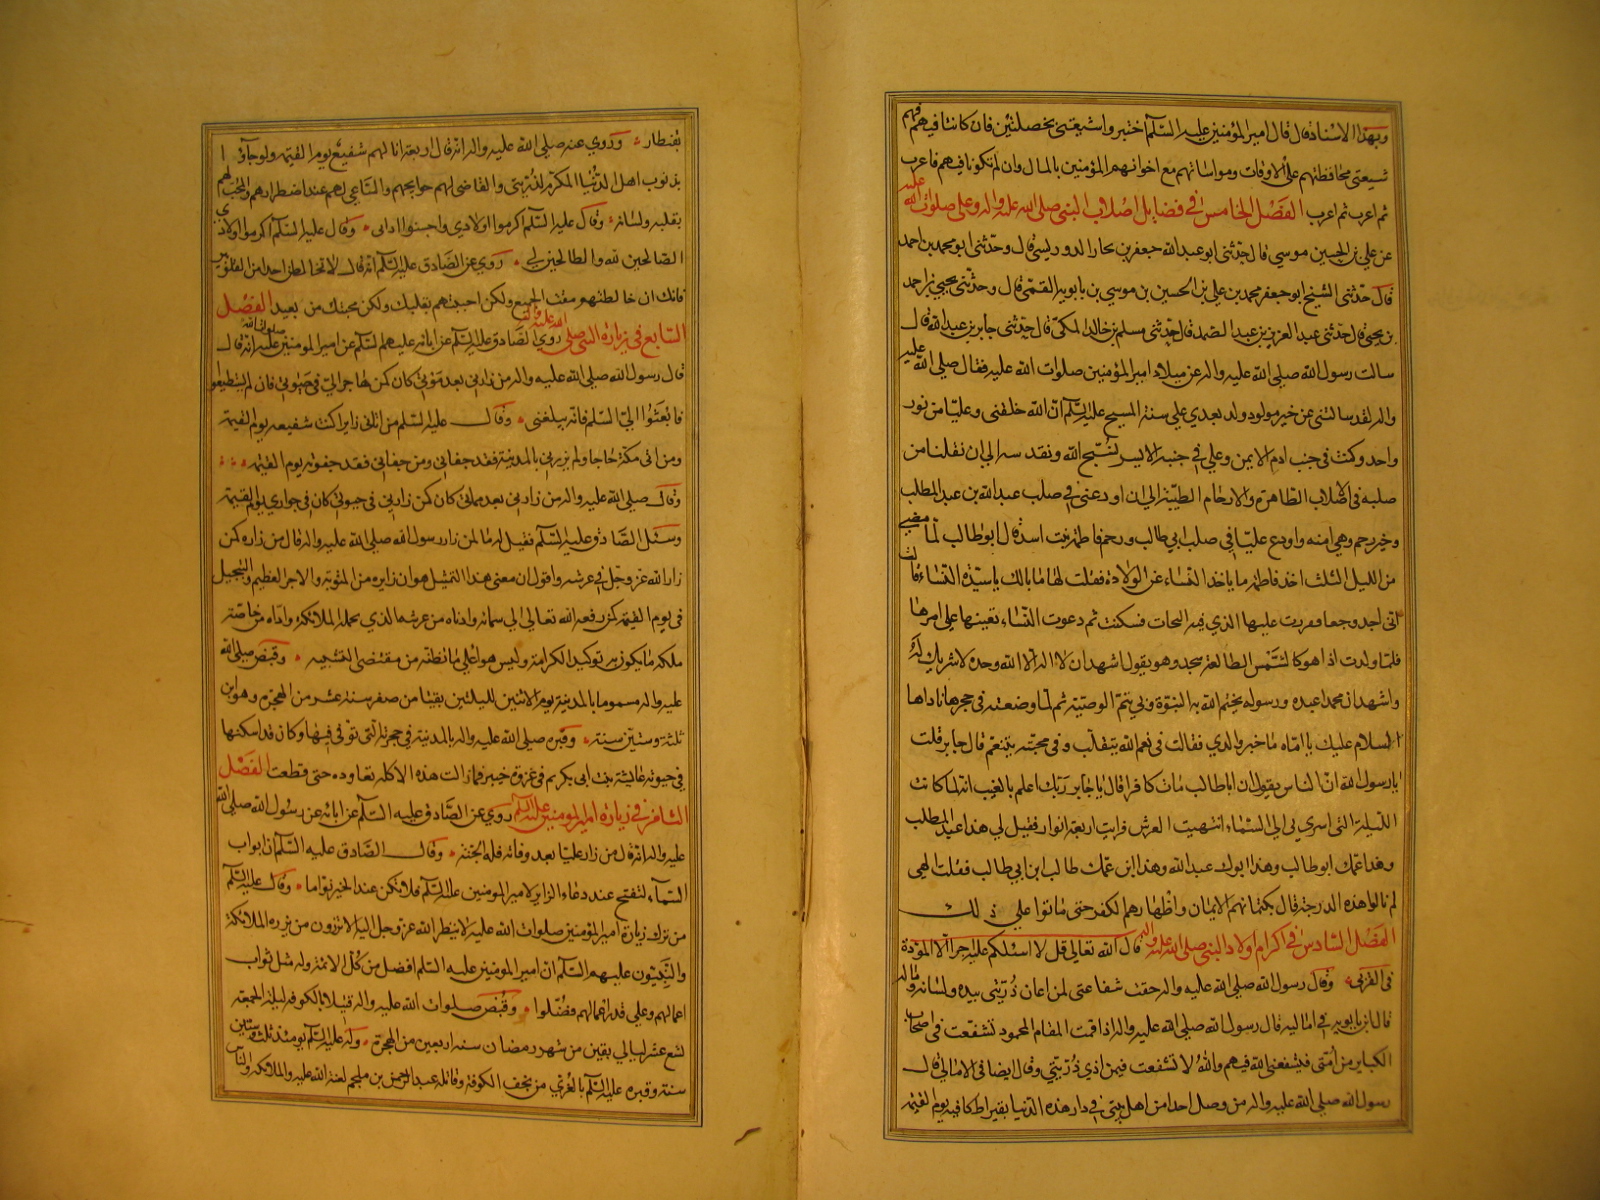 وبهذا الاسناد قال قال امير المؤمنين عليه السّلام اختبروا شيعتى بخصلتين فان كانتا فيهم فهم
شيعتى محافظتهم على الاوقات ومواساتهم مع اخوانهم المؤمنين بالمال وان لم تكونا فيهم فاعزب
ثم اعزب ثم اعزب الفصل الخامس فى فضايل اصلاب النبى صلى الله عليه واله وعلى صلوات الله عليه
عن على بن الحسين موسى قال حدّثنى ابو عبد الله جعفر بن بحار الدوريستى قال وحدّثنى ابو محمد بن احمد
قال حدّثنى الشيخ ابو جعفر محمد بن على بن الحسين بن موسى بن بابويه القمى قال وحدّثنى يحيى بن احمد
بن يحيى قال حدّثنى عبد العزيز بن عبد الصمد قال حدّثنى مسلم بن خالد المكى قال حدّثنى جابر بن عبد الله قال
سالت رسول الله صلى الله عليه واله عن ميلاد امير المؤمنين صلوات الله عليه فقال صلى الله عليه
واله لقد سالتنى عن خير مولود ولد بعدى على سنة المسيح عليه السّلام انّ الله خلقنى وعليّا من نور
واحد وكنت فى جنب ادم الايمن وعلى فى جنبه الايسر نسبّح الله ونقدسه الى ان نقلنا من
صلبه فى اصلاب الطّاهرة والارحام الطيّبة الى ان اودعنى فى صلب عبد الله بن عبد المطلب
وخير رحم وهى امنه واودع عليّا فى صلب ابى طالب ورحم فاطمة بنت اسد قال ابو طالب لمّا مضى
من الليل الثلث اخذ فاطمة ما ياخذ النّساء عن الولادة فقلت لها ما بالك يا سيّدة النّساء قالت
انى اجد وجعا وقرات عليها الذى فيه النجات فسكنت ثم دعوت النّساء تعينها على امرها
فلمّا ولدت اذا هو كالشمس الطالعة سجد وهو يقول اشهد ان لا اله الا الله وحده لا شريك له
واشهد ان محمدا عبده ورسوله يختم الله به النبوّة وبى يتم الوصيّة ثم لمّا وضعته فى حجرها ناداها
السلام عليك يا امّاه ما خبر والدى فقالت فى نعم الله يتقلّب وفى محبّته يتنعّم قال جابر قلت
يا رسول الله انّ الناس يقولون ان اباطالب مات كافرا قال يا جابر ربّك اعلم بالغيب انه لما كانت
اللّيلة التى اسرى بى الى السّماء انتهيت العرش فرايت اربعة انوار فقيل لى هذا عبد المطلب
وهذا عمك ابو طالب وهذا ابوك عبد الله وهذا ابن عمّك طالب ابن ابى طالب فقلت الهى
لم نالوا هذه الدرجة قال بكتمانهم الايمان واظهارهم لكفر حتى ماتوا على ذلك
الفصل السّادس فى اكرام اولاد النبى صلى الله عليه واله قال الله تعالى قل لا اسئلكم عليه اجرا الا المودّة
فى القربى وقال رسول الله صلى الله عليه واله حقت شفاعتى لمن اعان ذرّيّتى بيده ولسانه وماله
قال ابن بابويه فى اماليه قال رسول الله صلى الله عليه واله اذا قمت المقام المحمود تشفّعت فى اصحاب
الكباير من امّتى فيشفعنى الله فيهم والله لا تشفعت فيمن اذى ذرّيّتى وقال ايضا فى الامالى قال
رسول الله صلى الله عليه واله من وصل احدا من اهل بيتى فى دار هذه الدنيا بقيراط كافيه يوم القيمة
بقنطار وروى عنه صلى الله عليه واله انه قال اربعة انا لهم شفيع يوم القيمة ولو جاؤا
بذنوب اهل الدّنيا المكرم لذرّيّتى والقاضى لهم حوايجهم والسّاعى لهم عند اضطرارهم والمحب لهم
بقلبه ولسانه وقال عليه السّلم اكرموا اولادى واحسنوا ادابى وقال عليه السّلم اكرموا اولادى
الصّالحين لله والطالحين لى روى عن الصّادق عليه السّلم انه قال لا تخالطن احدا من العلويين
فانك ان خالطتهم مقت الجميع ولكن احببهم بقلبك ولكن محبتك من بعيد الفصل
السّابع فى زيارة النبى صلى الله عليه واله روى الصّادق عليه السّلم عن ابائه عليهم السّلم عن امير المؤمنين صلوات الله عليه انه قال
قال رسول الله صلى الله عليه واله من زارنى بعد موتى كان كمن هاجر الىّ فى حيوتى فان لم تستطيعوا
فابعثوا الىّ السّلم فانه يبلغنى وقال عليه السّلم من اتانى زايرا كنت شفيعه يوم القيمة
ومن اتى مكّة حاجا ولم يزرنى بالمدينة فقد جفانى ومن جفانى فقد جفوته يوم القيمة
وقال صلى الله عليه واله من زارنى بعد مماتى كان كمن زارنى فى حيوتى كان فى جوارى يوم القيمة
وسئل الصّادق عليه السّلم فقيل له ما لمن زار رسول الله صلى الله عليه واله قال من زاره كمن
زار الله عزّ وجلّ فى عرشه واقول ان معنى هذا التمثيل هو ان زايره من المثوبة والاجر العظيم والتبجيل
فى يوم القيمة كمن رفعه الله تعالى الى سمائه وادناه من عرشه الذى يحمله الملائكة واراه من خاصّة
ملكه ما يكون به توكيد الكرامة وليس هو على ما تظنه من مقتضى التشبيه وقبض صلى الله
عليه واله مسموما بالمدينة يوم الاثنين لليلتين بقيتا من صفر سنة عشر من الهجرة وهو ابن
ثلثة وستين سنة وقبره صلى الله عليه واله بالمدينة فى حجرته التى توفى فيها وكان قد اسكنها
فى حيوته عايشة بنت ابى بكر فى غزوة خيبر فما زالت هذه الاكلة تعاوده حتى قطعت الفصل
الثامن فى زيارة امير المومنين عليه السّلم روى عن الصّادق عليه السّلم عن ابائه عن رسول الله صلى الله
عليه واله انه قال من زار عليّا بعد وفاته فله الجنّة وقال الصّادق عليه السّلم ان ابواب
السّماء لتفتح عند دعاء الزاير لامير المومنين عليه السّلم فلا تكن عند الخير نوّاما وقال عليه السّلم
من ترك زيارة امير المؤمنين صلوات الله عليه لا ينظر الله عزّ وجل اليه الا تزورون من يزوره الملائكة
والنّبيّون عليهم السّلم ان امير المومنين عليه السّلم افضل من كلّ الائمة وله مثل ثواب
اعمالهم وعلى قدر اعمالهم فضّلوا وقبض صلوات الله عليه واله قتيلا بالكوفة ليلة الجمعة
لتسع عشر ليالى بقين من شهر رمضان سنة اربعين من الهجرة وله عليه السّلم يومئذ ثلث وستين
سنة وقبره عليه السّلم بالغرى من نجف الكوفة وقاتله عبد الرحمن بن ملجم لعنة الله عليه والملائكة والناس